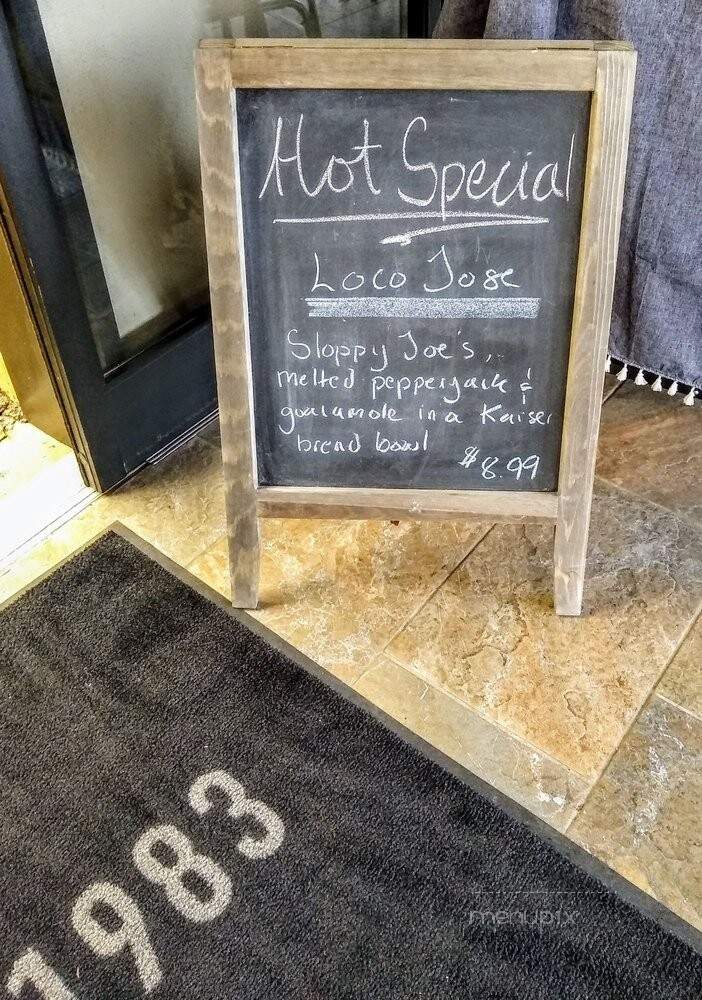 Hot Special
Loco Jose
Sloppy Joe's,
melted pepperjack &
guacamole in a Kaiser
bread bowl
$8.99
1983
menupix